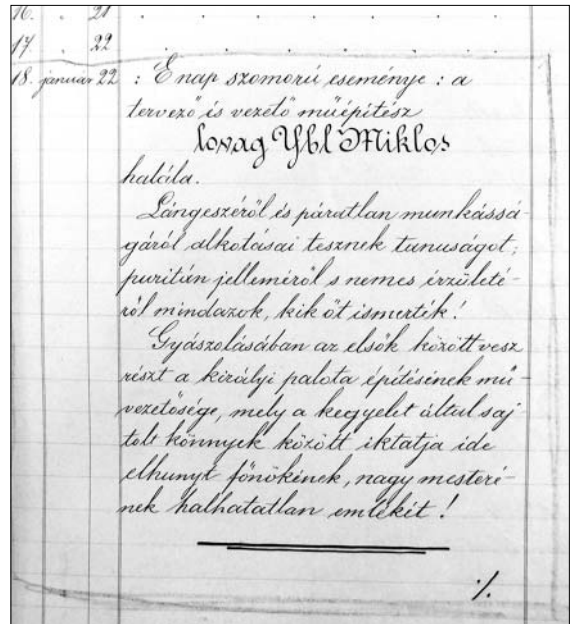 16. . 21 . . . . . .
17. . 22 . . . . . .
18. január 22 : E nap szomorú eseménye : a
tervező és vezető műépítész
lovag Ybl Miklos
halála.
Lángeszéről és páratlan munkássá-
gáról alkotásai tesznek tanuságot;
puritán jelleméről s nemes érzületé-
ről mindazok, kik őt ismerték!
Gyászolásában az elsők között vesz
részt a királyi palota építésének mű-
vezetősége, mely a kegyelet által saj
tolt könnyek között iktatja ide
elhunyt főnökének, nagy mesteré-
nek halhatatlan emlékét!
·/.